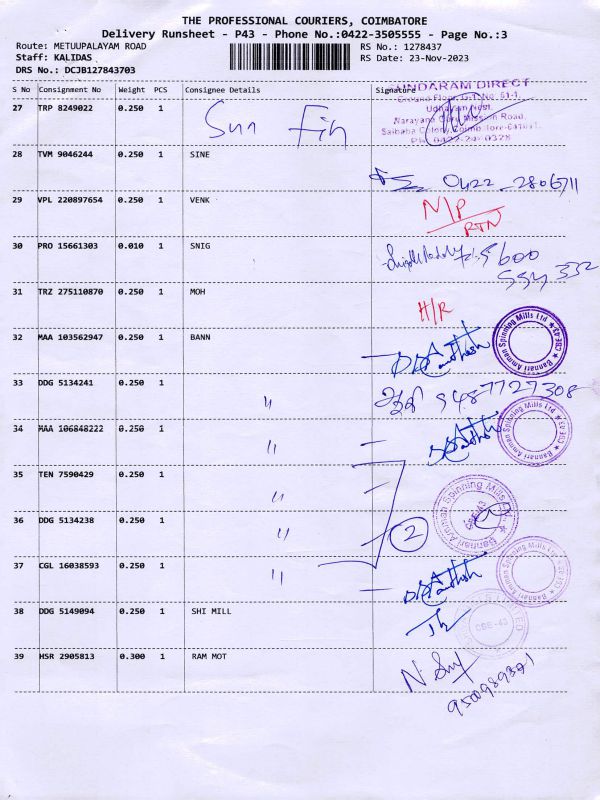 THE PROFESSIONAL COURIERS, COIMBATORE
Delivery Runsheet - P43 - Phone No.:0422-3505555 - Page No.:3
Route: METUUPALAYAM ROAD RS No.: 1278437
Staff: KALIDAS RS Date: 23-Nov-2023
DRS No.: DCJB127843703
S No Consignment No Weight PCS Consignee Details Signature
SUNDARAM DIRECT
27 TRP 8249022 0.250 1 Sun Fin
Narayana Guru Mission Road,
Saibaba Colony, Coimbatore-641011.
28 TVM 9046244 0.250 1 SINE
0422-2806711
29 VPL 220897654 0.250 1 VENK N/P
RTN
30 PRO 15661303 0.010 1 SNIG
31 TRZ 275110870 0.250 1 MOH H/R
32 MAA 103562947 0.250 1 BANN
Bannari Amman Spinning Mills Ltd ★ CBE-43 ★
33 DDG 5134241 0.250 1 〃 9487727308
34 MAA 106848222 0.250 1 〃
Bannari Amman Spinning Mills Ltd ★ CBE-43 ★
35 TEN 7590429 0.250 1 〃
Bannari Amman Spinning Mills Ltd ★ CBE-43
36 DDG 5134238 0.250 1 〃 2
37 CGL 16038593 0.250 1 〃
Bannari Amman Spinning Mills Ltd ★ CBE-43 ★
38 DDG 5149094 0.250 1 SHI MILL
CBE-43
39 HSR 2905813 0.300 1 RAM MOT